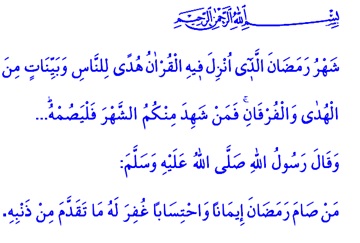 بِسْمِ اللهِ الرَّحْمٰنِ الرَّحِيمِ
شَهْرُ رَمَضَانَ الَّذٖٓي اُنْزِلَ فٖيهِ الْقُرْاٰنُ هُدًى لِلنَّاسِ وَبَيِّنَاتٍ مِنَ
الْهُدٰى وَالْفُرْقَانِۚ فَمَنْ شَهِدَ مِنْكُمُ الشَّهْرَ فَلْيَصُمْهُۜ...
وَقَالَ رَسُولُ اللهِ صَلَّى اللهُ عَلَيْهِ وَسَلَّمَ:
مَنْ صَامَ رَمَضَانَ إِيمَانًا وَاحْتِسَابًا غُفِرَ لَهُ مَا تَقَدَّمَ مِنْ ذَنْبِهِ.